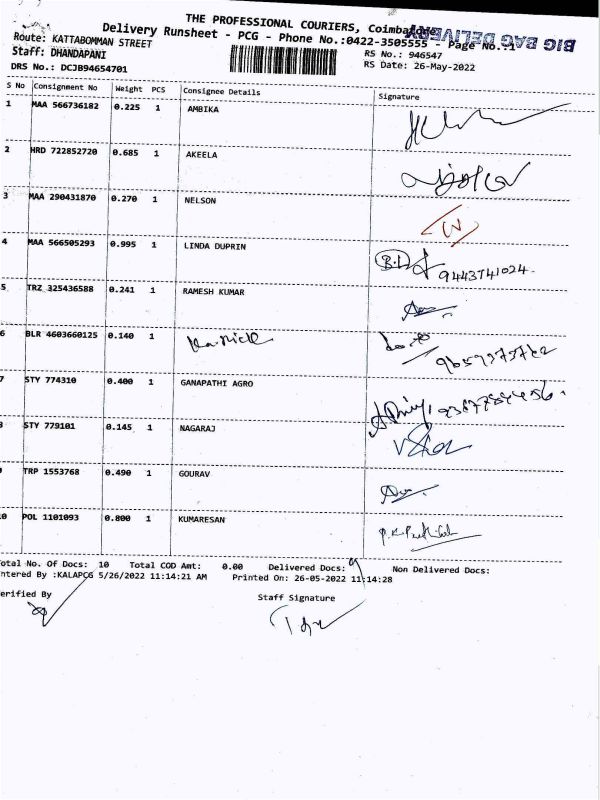 THE PROFESSIONAL COURIERS, Coimbatore
Delivery Runsheet - PCG - Phone No.:0422-3505555 - Page No.:1
BIG BAG DELIVERY
Route: KATTABOMMAN STREET
RS No.: 946547
Staff: DHANDAPANI
RS Date: 26-May-2022
DRS No.: DCJB94654701
S No Consignment No Weight PCS Consignee Details Signature
1 MAA 566736182 0.225 1 AMBIKA
2 HRD 722852720 0.685 1 AKEELA
3 MAA 290431870 0.270 1 NELSON
4 MAA 566505293 0.995 1 LINDA DUPRIN 9443741024
5 TRZ 325436588 0.241 1 RAMESH KUMAR
6 BLR 4603660125 0.140 1
7 STY 774310 0.400 1 GANAPATHI AGRO
8 STY 779101 0.145 1 NAGARAJ
9 TRP 1553768 0.490 1 GOURAV
0 POL 1101093 0.800 1 KUMARESAN
otal No. Of Docs: 10 Total COD Amt: 0.00 Delivered Docs: 9 Non Delivered Docs:
ntered By :KALAPCG 5/26/2022 11:14:21 AM Printed On: 26-05-2022 11:14:28
erified By
Staff Signature